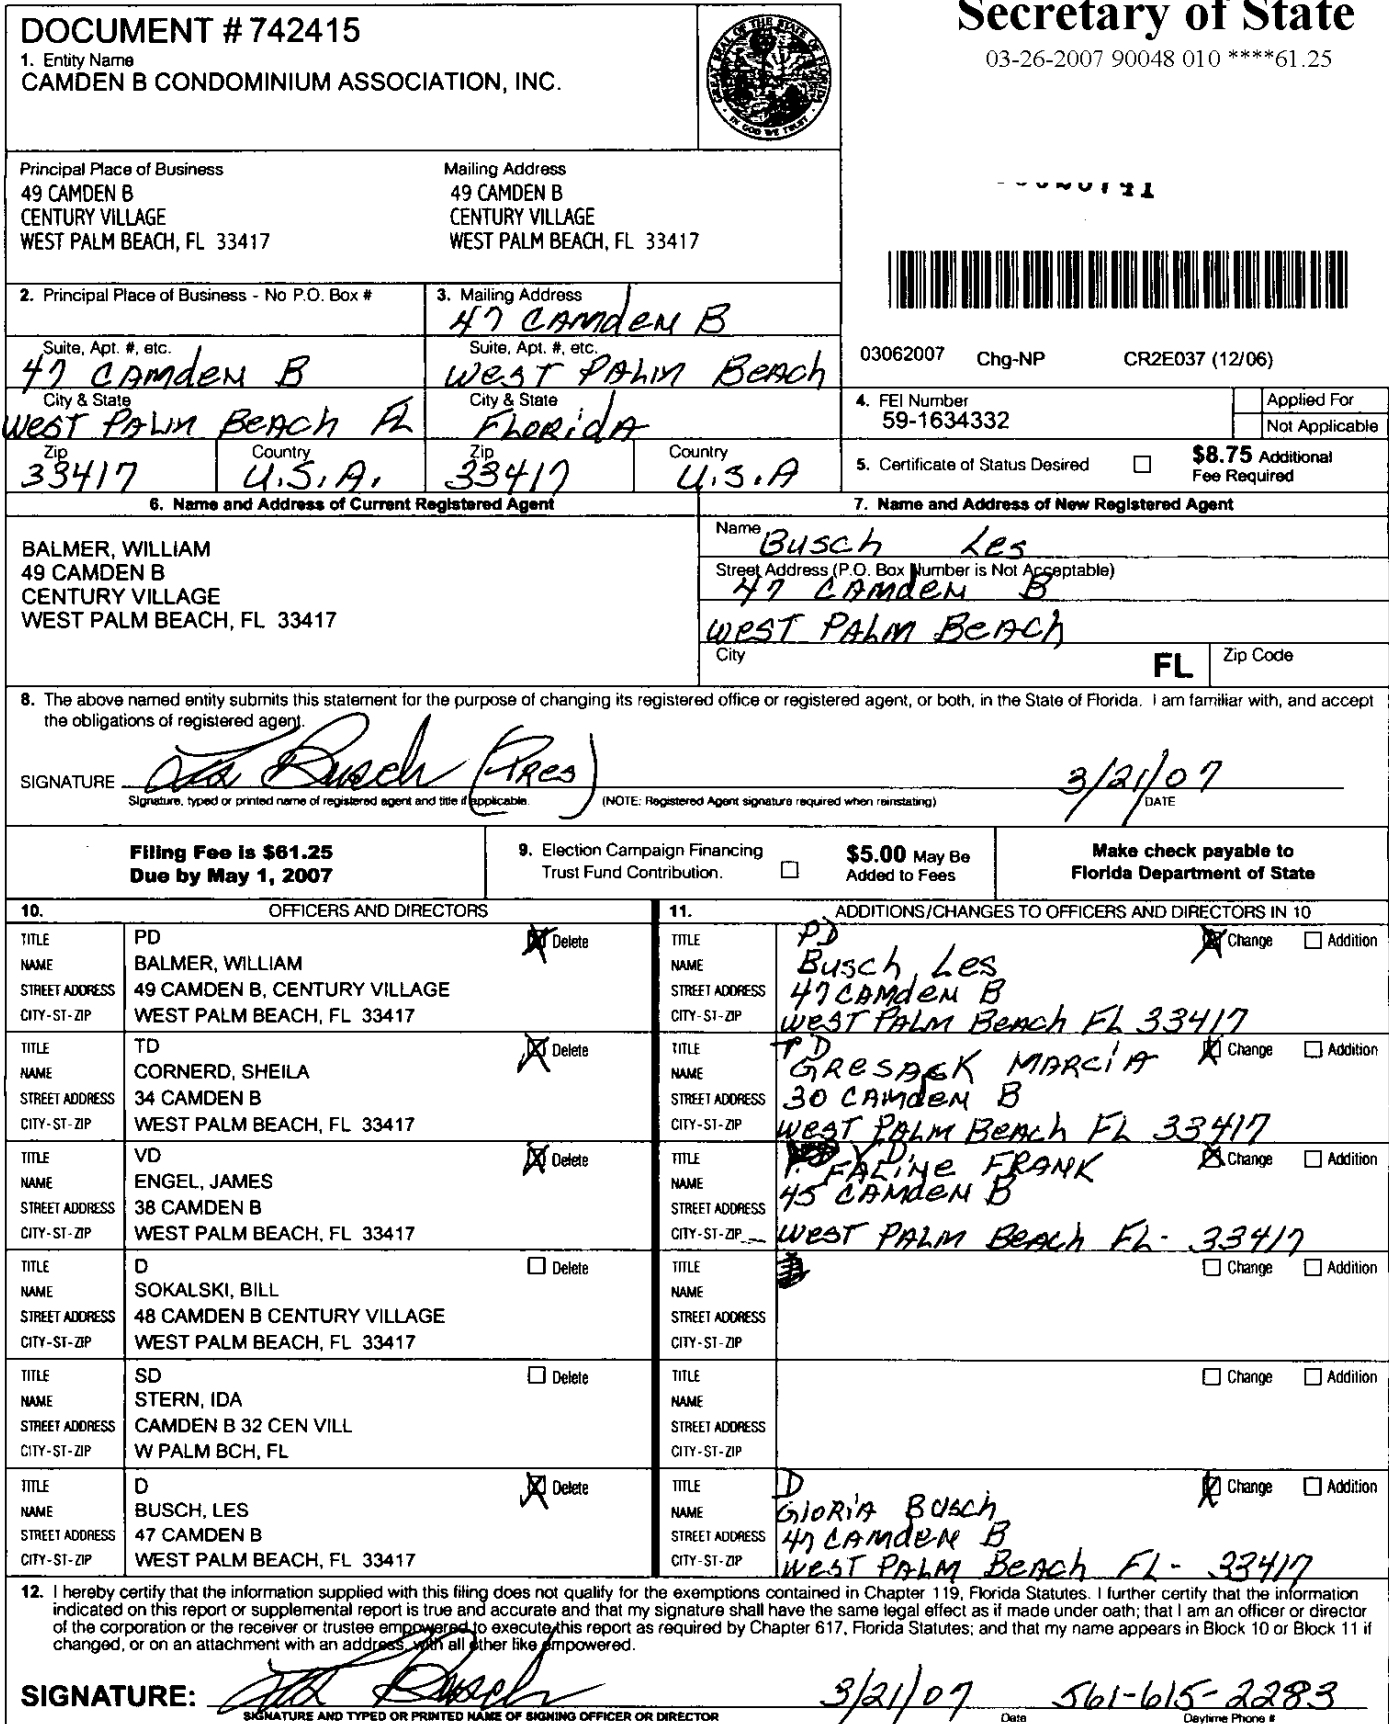 DOCUMENT # 742415
1. Entity Name
CAMDEN B CONDOMINIUM ASSOCIATION, INC.
GREAT SEAL OF THE STATE OF FLORIDA
IN GOD WE TRUST
Secretary of State
03-26-2007 90048 010 ****61.25
Principal Place of Business
49 CAMDEN B
CENTURY VILLAGE
WEST PALM BEACH, FL 33417
Mailing Address
49 CAMDEN B
CENTURY VILLAGE
WEST PALM BEACH, FL 33417
2. Principal Place of Business - No P.O. Box #
3. Mailing Address
47 CAMdeN B
Suite, Apt. #, etc.
47 CAMdeN B
Suite, Apt. #, etc.
WEST PALM BEACH
City & State
WEST PALM BEACH FL
City & State
FLORIDA
Zip
33417
Country
U.S.A.
Zip
33417
Country
U.S.A
03062007 Chg-NP CR2E037 (12/06)
4. FEI Number
59-1634332
Applied For
Not Applicable
5. Certificate of Status Desired
$8.75 Additional
Fee Required
6. Name and Address of Current Registered Agent
BALMER, WILLIAM
49 CAMDEN B
CENTURY VILLAGE
WEST PALM BEACH, FL 33417
7. Name and Address of New Registered Agent
Name Busch Les
Street Address (P.O. Box Number is Not Acceptable)
47 CAMdeN B
WEST PALM BEACH
City FL Zip Code
8. The above named entity submits this statement for the purpose of changing its registered office or registered agent, or both, in the State of Florida. I am familiar with, and accept
the obligations of registered agent.
SIGNATURE Les Busch (Pres) 3/21/07
Signature, typed or printed name of registered agent and title if applicable. (NOTE: Registered Agent signature required when reinstating) DATE
Filing Fee is $61.25
Due by May 1, 2007
9. Election Campaign Financing
Trust Fund Contribution.
$5.00 May Be
Added to Fees
Make check payable to
Florida Department of State
10. OFFICERS AND DIRECTORS
11. ADDITIONS/CHANGES TO OFFICERS AND DIRECTORS IN 10
TITLE PD Delete
NAME BALMER, WILLIAM
STREET ADDRESS 49 CAMDEN B, CENTURY VILLAGE
CITY-ST-ZIP WEST PALM BEACH, FL 33417
TITLE PD Change Addition
NAME Busch, Les
STREET ADDRESS 47 CAMdeN B
CITY-ST-ZIP WEST PALM BEACH FL 33417
TITLE TD Delete
NAME CORNERD, SHEILA
STREET ADDRESS 34 CAMDEN B
CITY-ST-ZIP WEST PALM BEACH, FL 33417
TITLE TD Change Addition
NAME GRESACK MARCIA
STREET ADDRESS 30 CAMdeN B
CITY-ST-ZIP WEST PALM BEACH FL 33417
TITLE VD Delete
NAME ENGEL, JAMES
STREET ADDRESS 38 CAMDEN B
CITY-ST-ZIP WEST PALM BEACH, FL 33417
TITLE V.D. Change Addition
NAME FALINE FRANK
STREET ADDRESS 45 CAMdeN B
CITY-ST-ZIP WEST PALM BEACH FL- 33417
TITLE D Delete
NAME SOKALSKI, BILL
STREET ADDRESS 48 CAMDEN B CENTURY VILLAGE
CITY-ST-ZIP WEST PALM BEACH, FL 33417
TITLE Change Addition
NAME
STREET ADDRESS
CITY-ST-ZIP
TITLE SD Delete
NAME STERN, IDA
STREET ADDRESS CAMDEN B 32 CEN VILL
CITY-ST-ZIP W PALM BCH, FL
TITLE Change Addition
NAME
STREET ADDRESS
CITY-ST-ZIP
TITLE D Delete
NAME BUSCH, LES
STREET ADDRESS 47 CAMDEN B
CITY-ST-ZIP WEST PALM BEACH, FL 33417
TITLE D Change Addition
NAME GLORIA Busch
STREET ADDRESS 47 CAMdeN B
CITY-ST-ZIP WEST PALM BEACH FL- 33417
12. I hereby certify that the information supplied with this filing does not qualify for the exemptions contained in Chapter 119, Florida Statutes. I further certify that the information
indicated on this report or supplemental report is true and accurate and that my signature shall have the same legal effect as if made under oath; that I am an officer or director
of the corporation or the receiver or trustee empowered to execute this report as required by Chapter 617, Florida Statutes; and that my name appears in Block 10 or Block 11 if
changed, or on an attachment with an address, with all other like empowered.
SIGNATURE: Les Busch 3/21/07 561-615-2283
SIGNATURE AND TYPED OR PRINTED NAME OF SIGNING OFFICER OR DIRECTOR Date Daytime Phone #